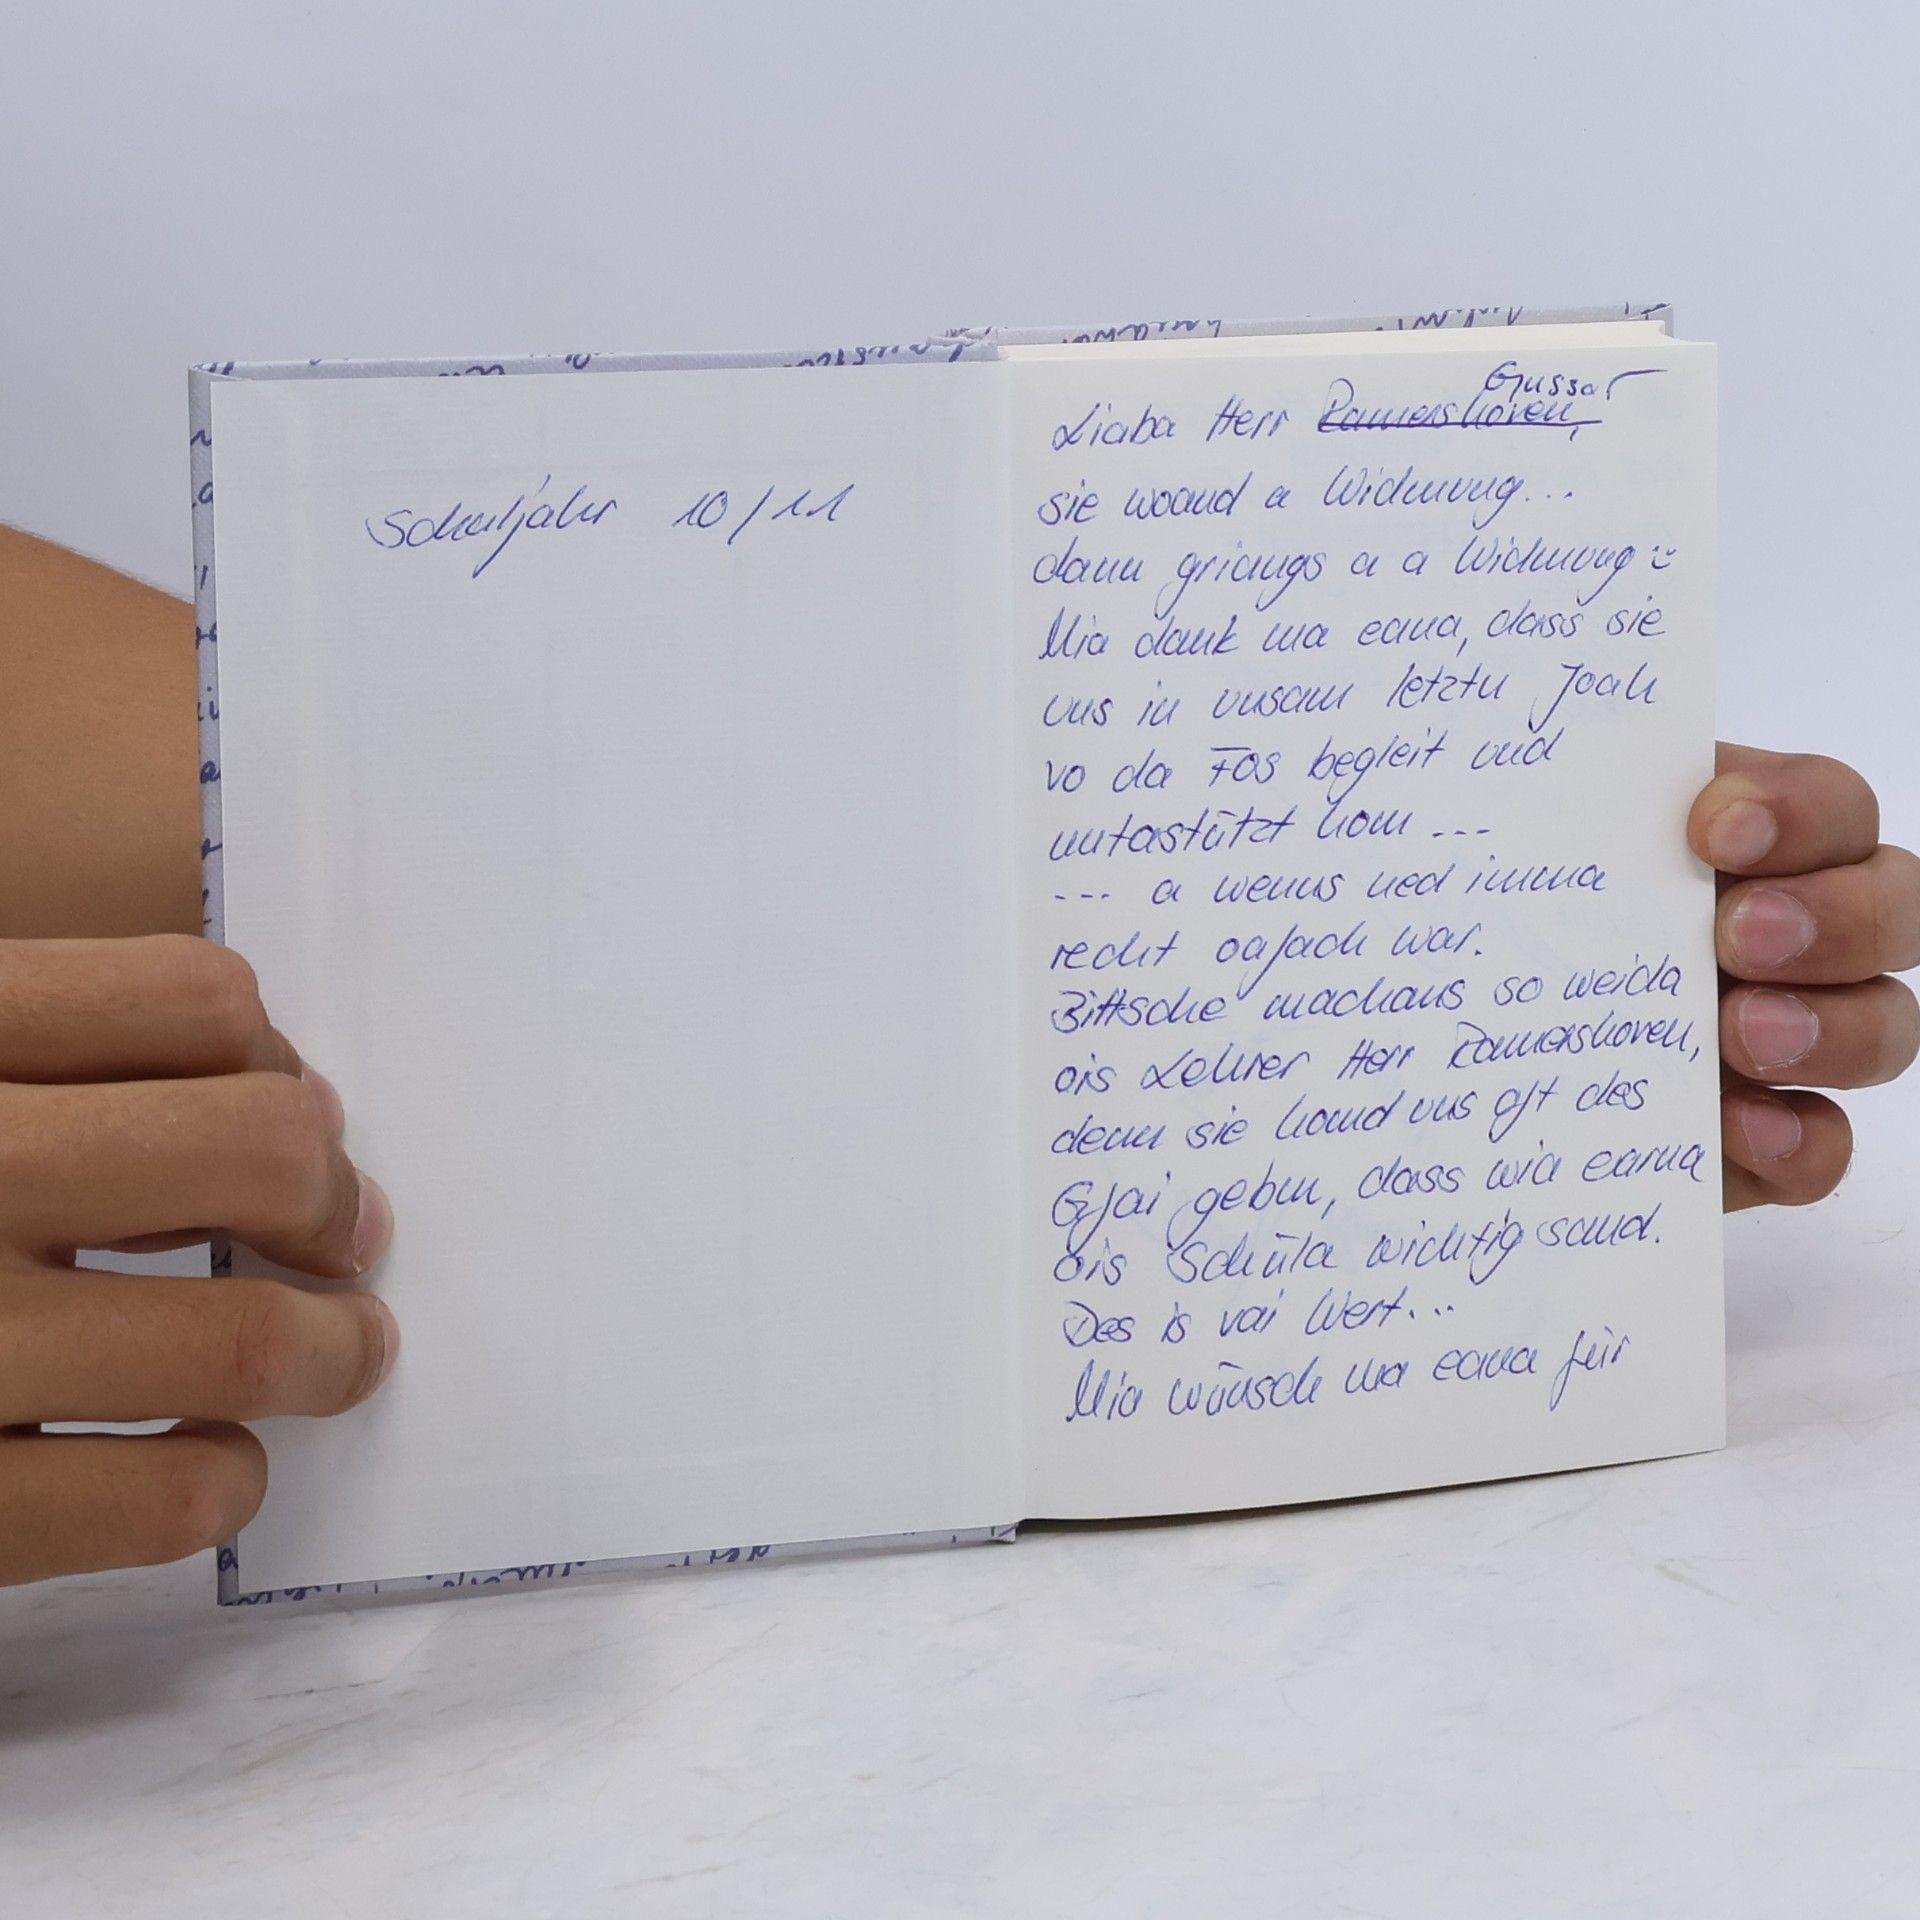 Schuljahr 10/11
Gussar
Liaba Herr Ramershoven,
sie woand a Widmung...
dann griangs a a Widmung :)
Mia dank ma eana, dass sie
uns in unsam letztn Joah
vo da FOS begleit und
untastützt hom ---
--- a wenns ned imma
recht oafach war.
Bittsche machans so weida
ois Lehrer Herr Ramershoven,
denn sie homd uns oft des
Gfai gebm, dass wia earna
ois Schüla wichtig sand.
Des is vai Wert...
Mia wünsch ma eana für